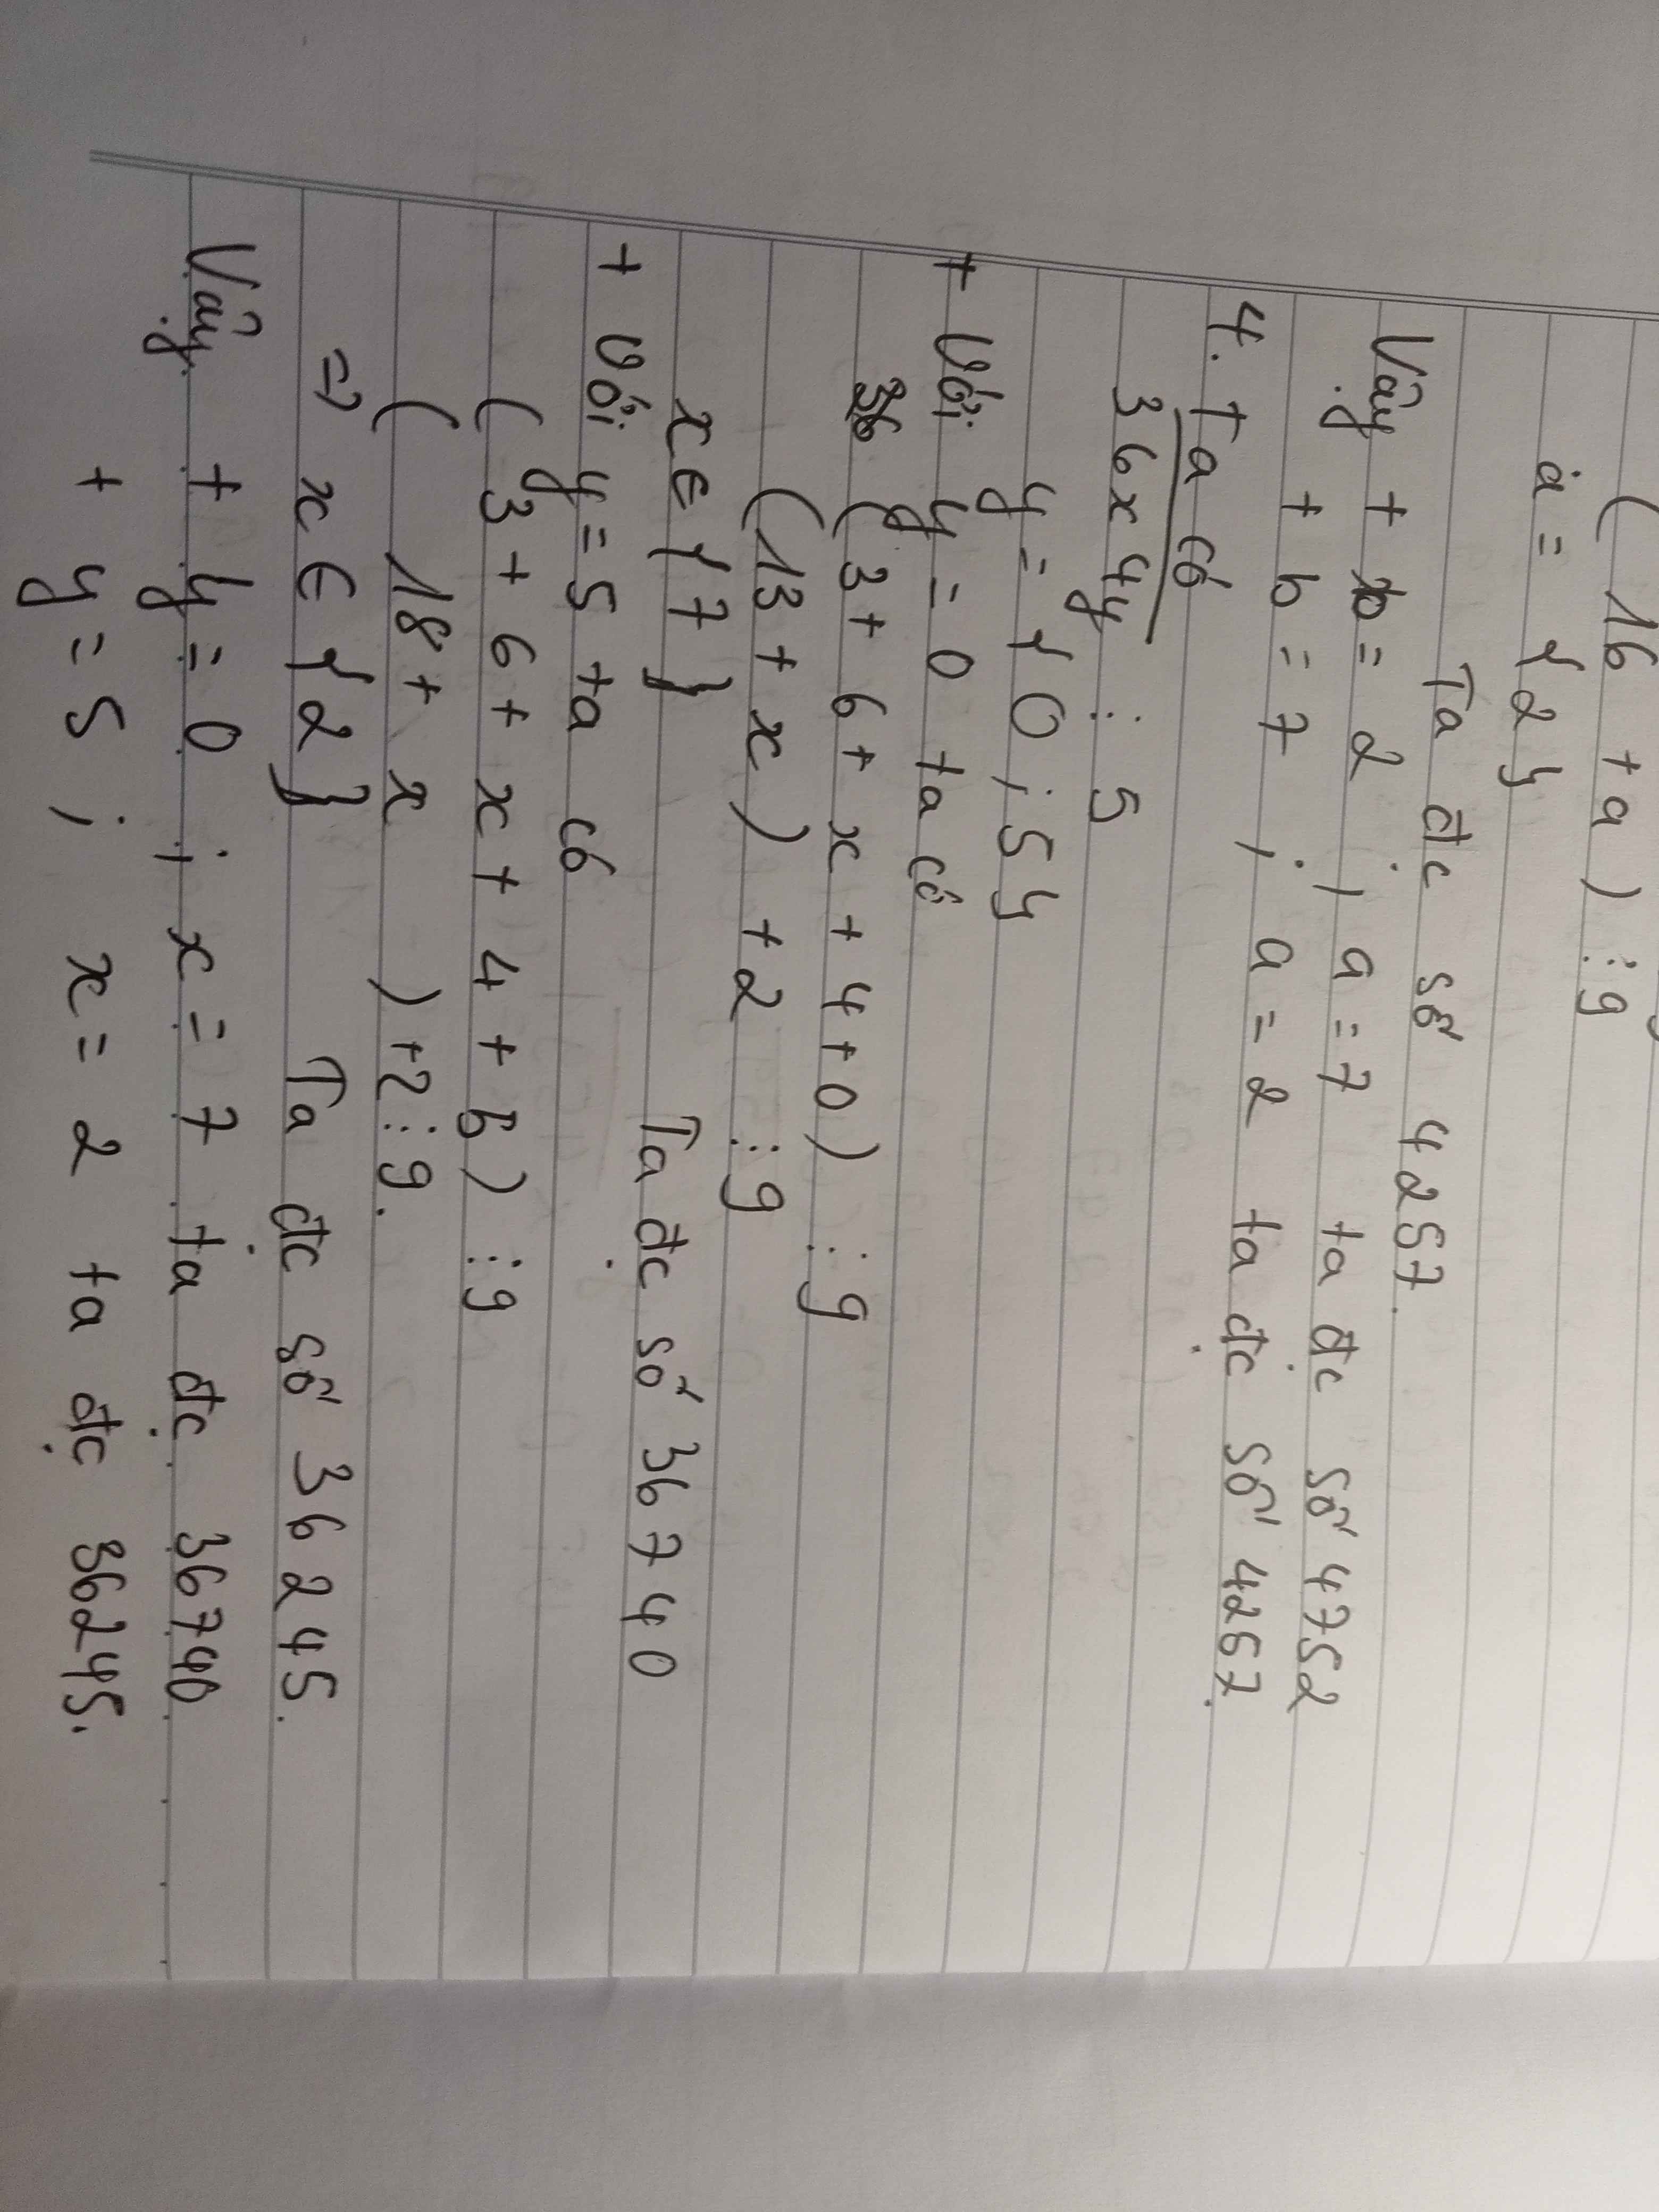 ( 16 + a ) ⋮ 9
a = { 2 }
Ta đc số 4257.
Vậy + b = 2 ; a = 7 ta đc số 4752
+ b = 7 ; a = 2 ta đc số 4257.
4. Ta có
36x4y ⋮ 5
y = { 0 ; 5 }
+ Với y = 0 ta có
(3 + 6 + x + 4 + 0) ⋮ 9
(13 + x ) + 2 ⋮ 9
x ∈ { 7 } Ta đc số 36740
+ Với y = 5 ta có
( 3 + 6 + x + 4 + 5 ) ⋮ 9
( 18 + x ) + 2 ⋮ 9.
=> x ∈ { 2 } Ta đc số 36245.
Vậy + y = 0 ; x = 7 ta đc 36740.
+ y = 5 ; x = 2 ta đc 36245.